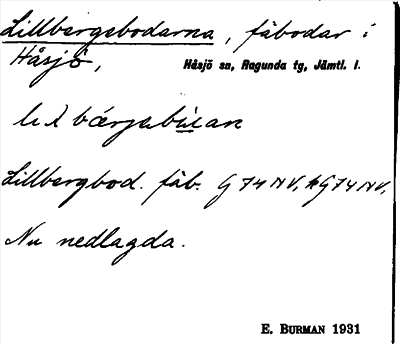 Lillbergsbodarna, fäbodar i
Håsjö, Håsjö sn, Ragunda tg, Jämtl. l.
Lillbergbod. fäb. G 74 NV, G 74 NV.
Nu nedlagda.
E. BURMAN 1931